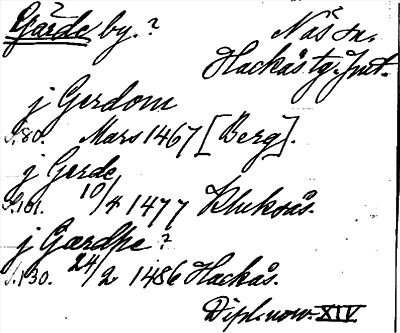 Gärde by. ?
Näs sn.
Hackås tg. Jmt.
j Gerdom
S. 80. Mars 1467 [Berg].
j Gerde
S. 101. 10/4 1477 Kluksås.
j Gærdhe ?
S. 130. 24/2 1486 Hackås.
Dipl. nov. XIV